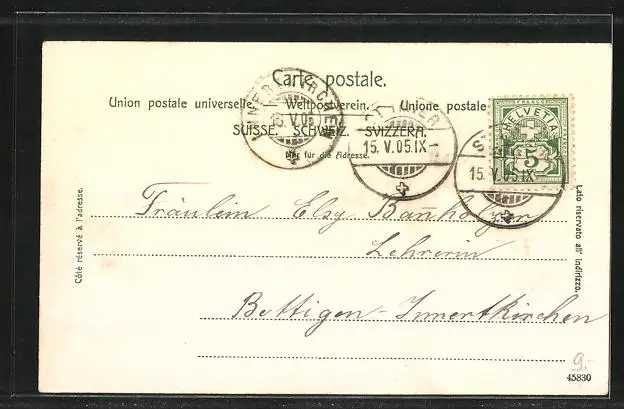 Carte postale.
Union postale universelle. — Weltpostverein. — Unione postale
SUISSE. SCHWEIZ. SVIZZERA.
Nur für die Adresse.
INNERTKIRCHEN
15. V. 05
15. V. 05. IX
HELVETIA
FRANCO
5
15. V. 05. IX
Côté réservé à l'adresse.
Lato riservato all' indirizzo.
Fräulein Elsy Ban̄holzer
Lehrerin
Bottigen-Innertkirchen
9.-
45830